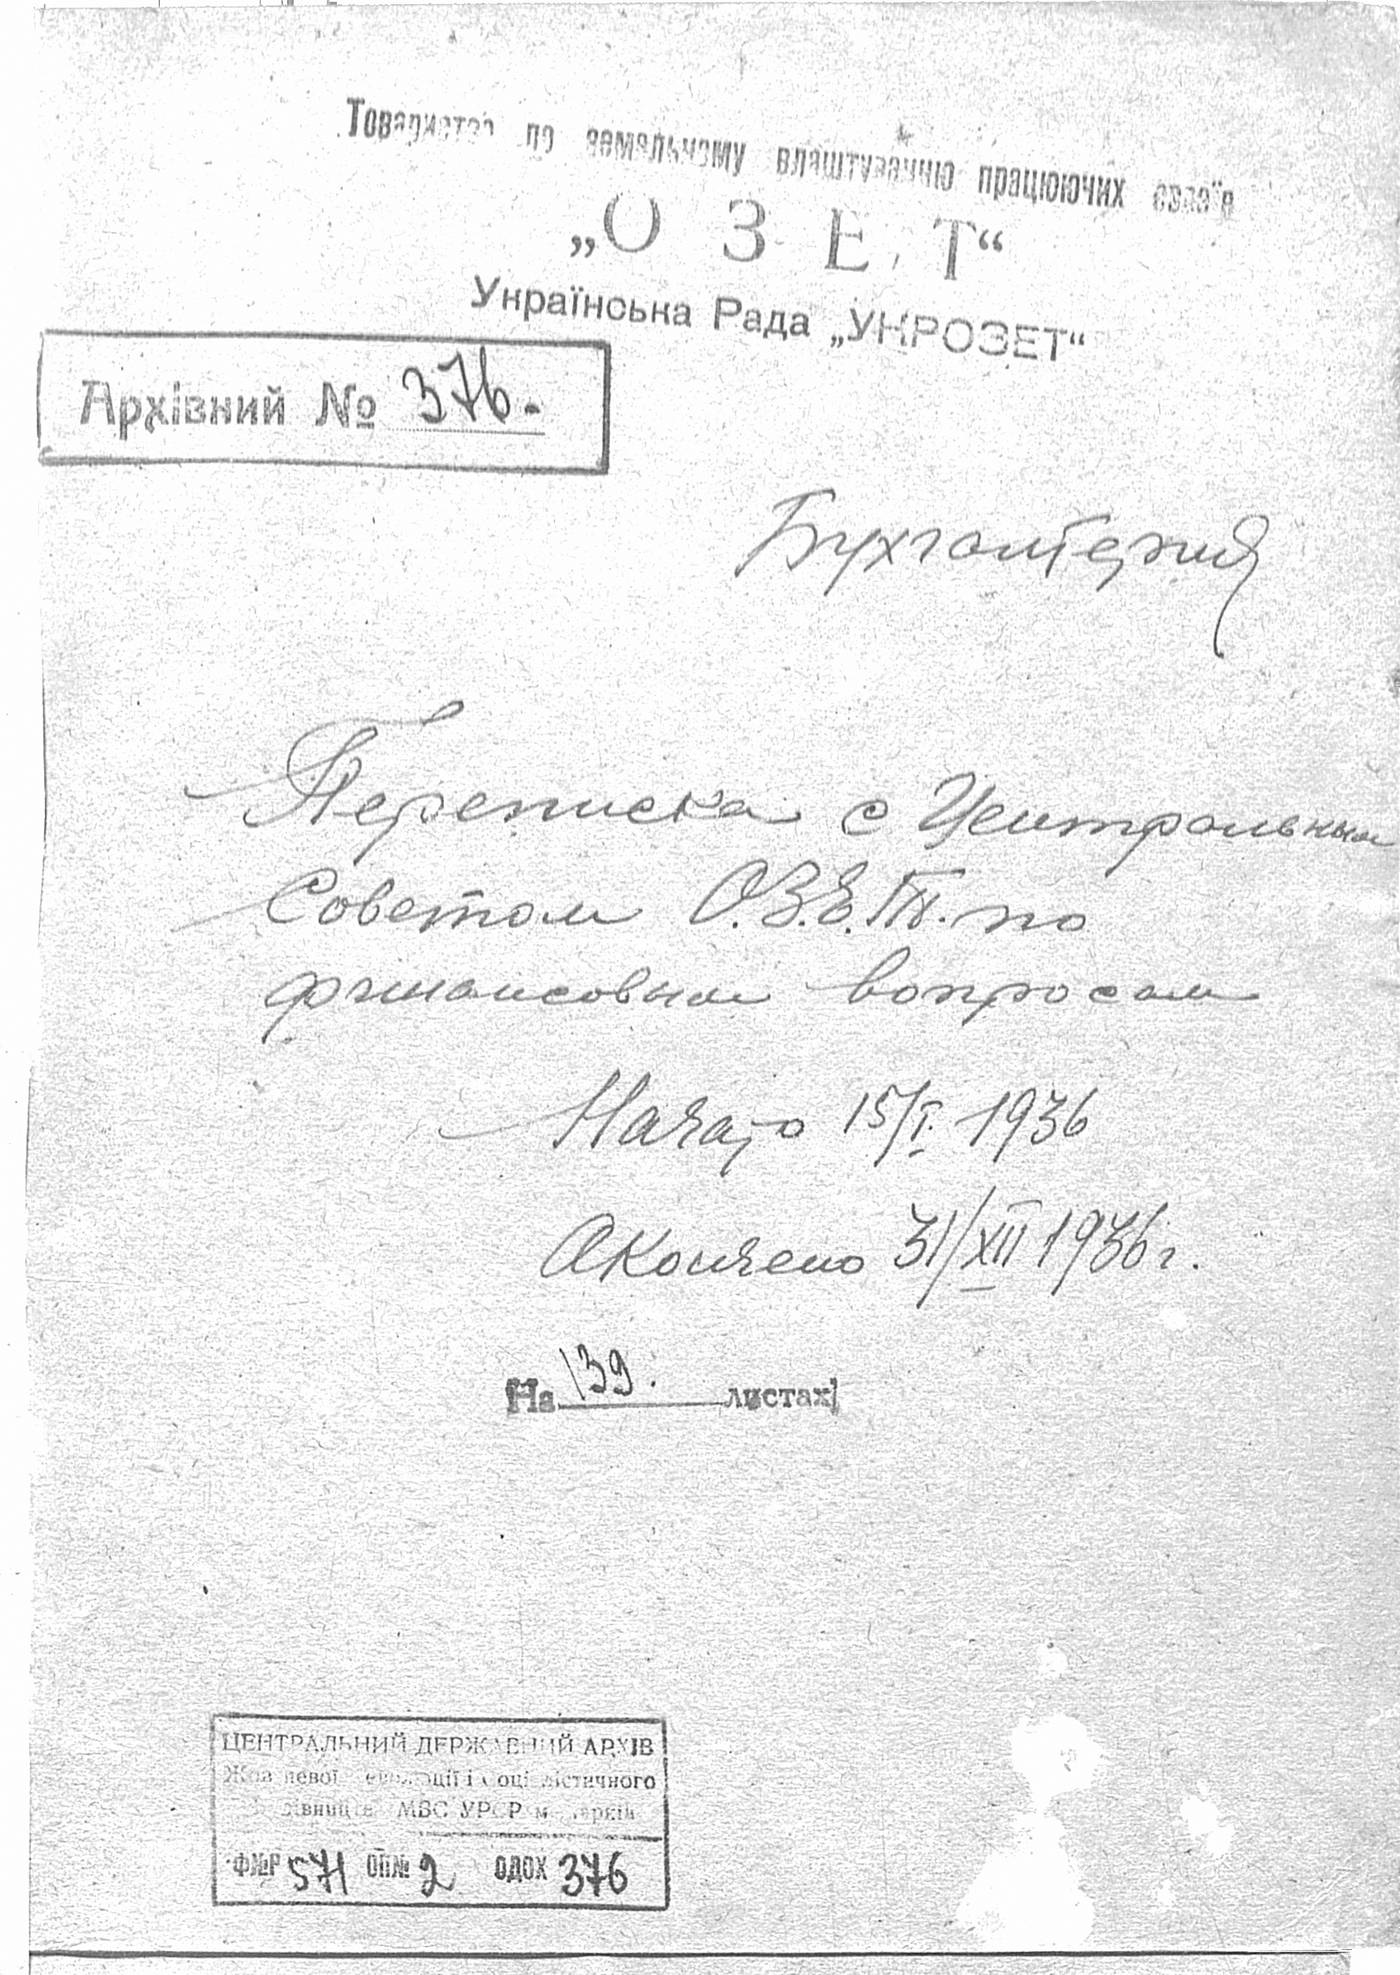 Товариство по земельному влаштуванню працюючих євреїв
„ОЗЕТ“
Українська Рада „УКРОЗЕТ“
Архівний № 376.
Бухгалтерия
Переписка с Центральным
Советом О.З.Е.Т. по
финансовым вопросам
Начато 15/I. 1936
Окончено 31/XII 1936 г.
На 139. листах
ЦЕНТРАЛЬНИЙ ДЕРЖАВНИЙ АРХІВ
Жовтневої революції і соціалістичного
будівництва МВС УРСР м. Харків
Ф№Р 571 ОП№ 2 ОДОХ 376